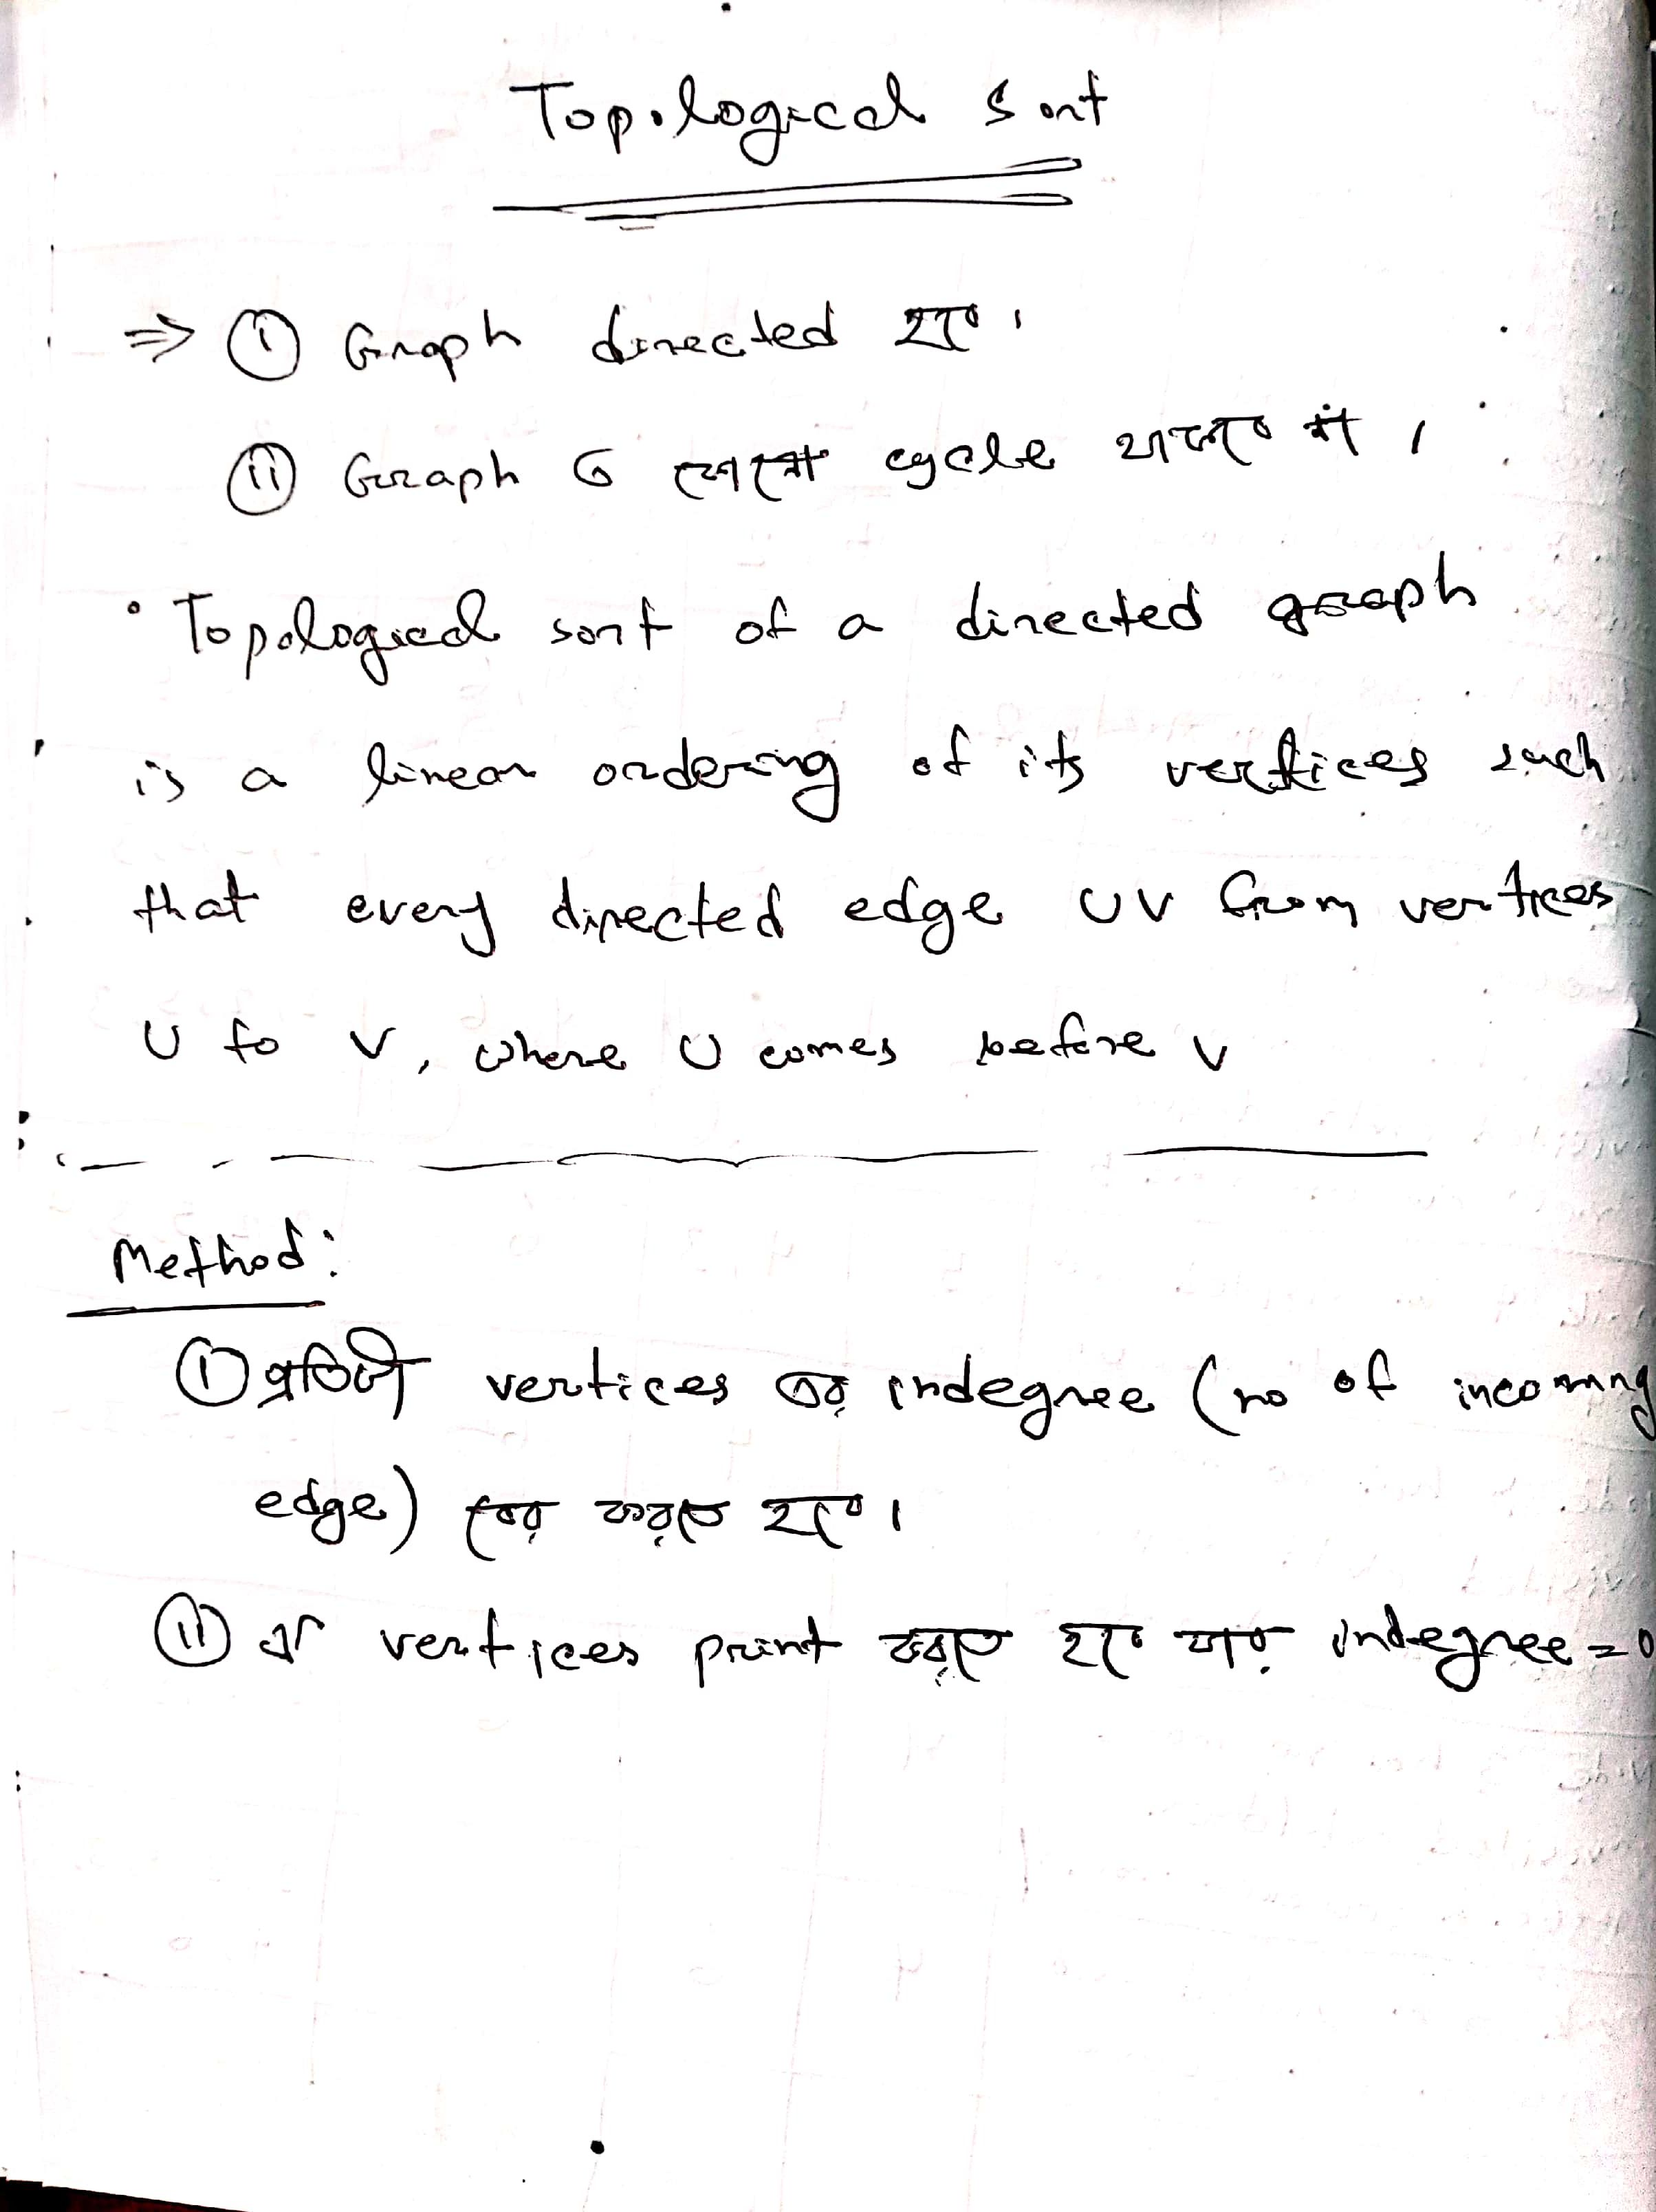 Topological Sort
⇒ (i) Graph directed হবে।
(ii) Graph এ কোনো cycle থাকবে না।
• Topological sort of a directed graph
is a linear ordering of its vertices such
that every directed edge UV from vertices
U to V, where U comes before V
Method:
(i) প্রতিটা vertices এর indegree (no of incoming
edge) বের করতে হবে।
(ii) ঐ vertices print করতে হবে যার indegree = 0